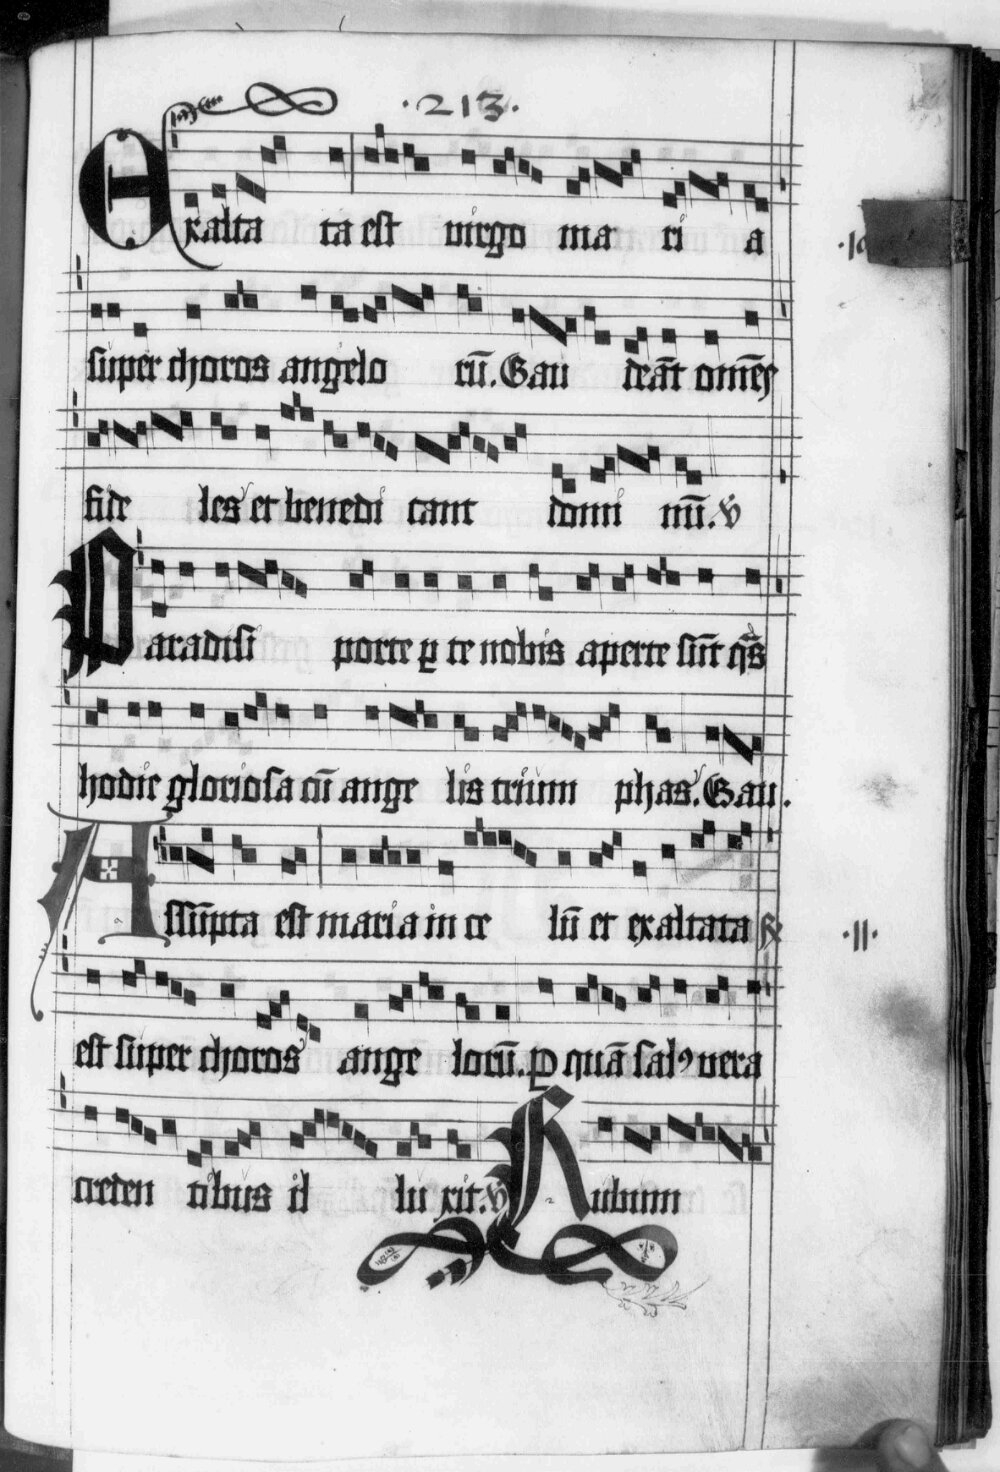 ·213·
Exalta ta est virgo ma ri a
super choros angelo rū. Gau deāt om̄es
fide les et benedi cant domi nū. ℣
Paradisi porte ꝑ te nobis aperte sūt q̄s
hodie gloriosa cū ange lis trium phas. Gau.
Assūpta est maria in ce lū et exaltata ℟
·II·
est super choros ange lorū. P quā salꝰ vera
creden tibus il lu xit. ℣ Rubum